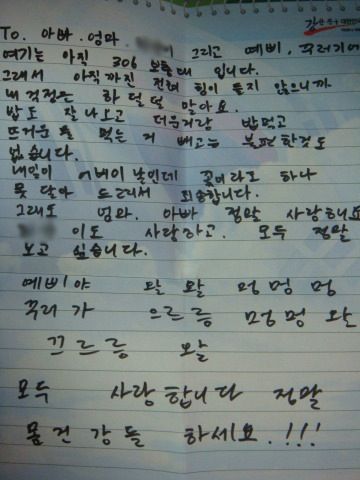 To. 아빠. 엄마. 그리고 예삐, 꾸러기에
여기는 아직 306 보충대 입니다.
그래서 아직까진 전혀 힘이 들지 않으니까
내 걱정은 하덜덜 말아요.
밥도 잘 나오고 더운거랑 밥먹고
뜨거운 물 먹는 거 빼고는 불편한것도
없습니다.
내일이 어버이 날인데 꽃이라도 하나
못 달아 드려서 죄송합니다.
그래도 엄마. 아빠 정말 사랑해요
이도 사랑하고. 모두 정말
보고 싶습니다.
예삐야 왈 왈 멍 멍 멍
꾸러기 으르릉 멍멍 왈
끄르릉 왈
모두 사랑합니다 정말
몸건강들 하세요.!!!